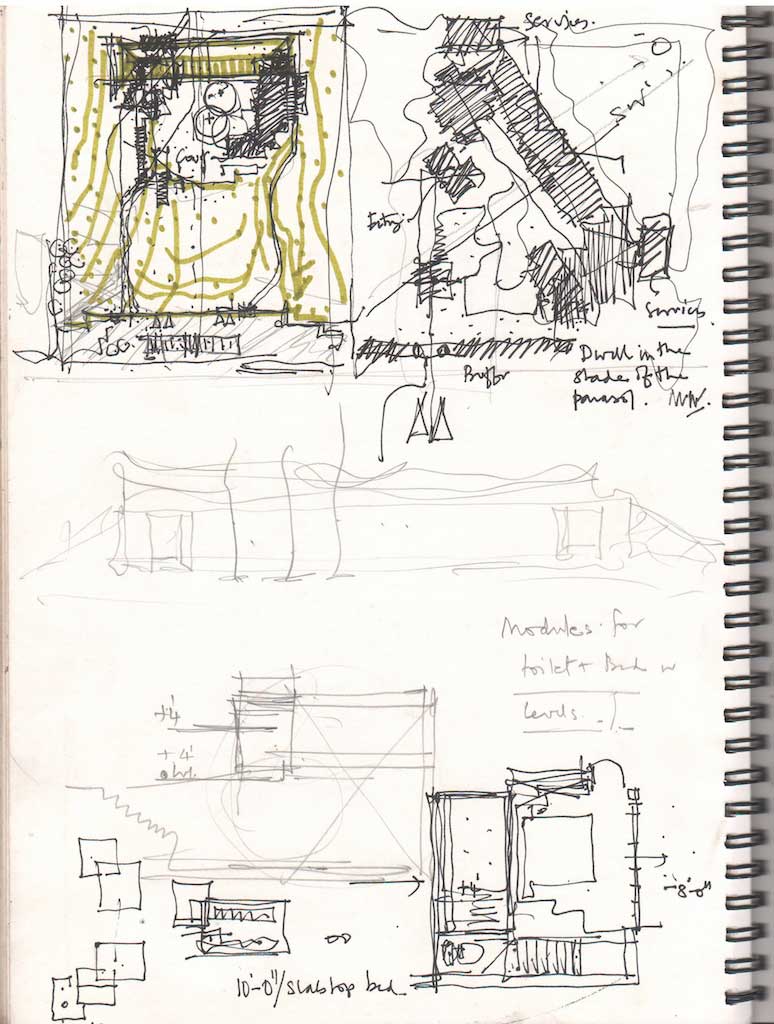 Services.
Entry
Services
Buffer
Dwell in the
shade of the
parasol.
Modules for
toilet + Bed w
levels.
+4'
+4'
+4'
10'-0"/slabtop bed